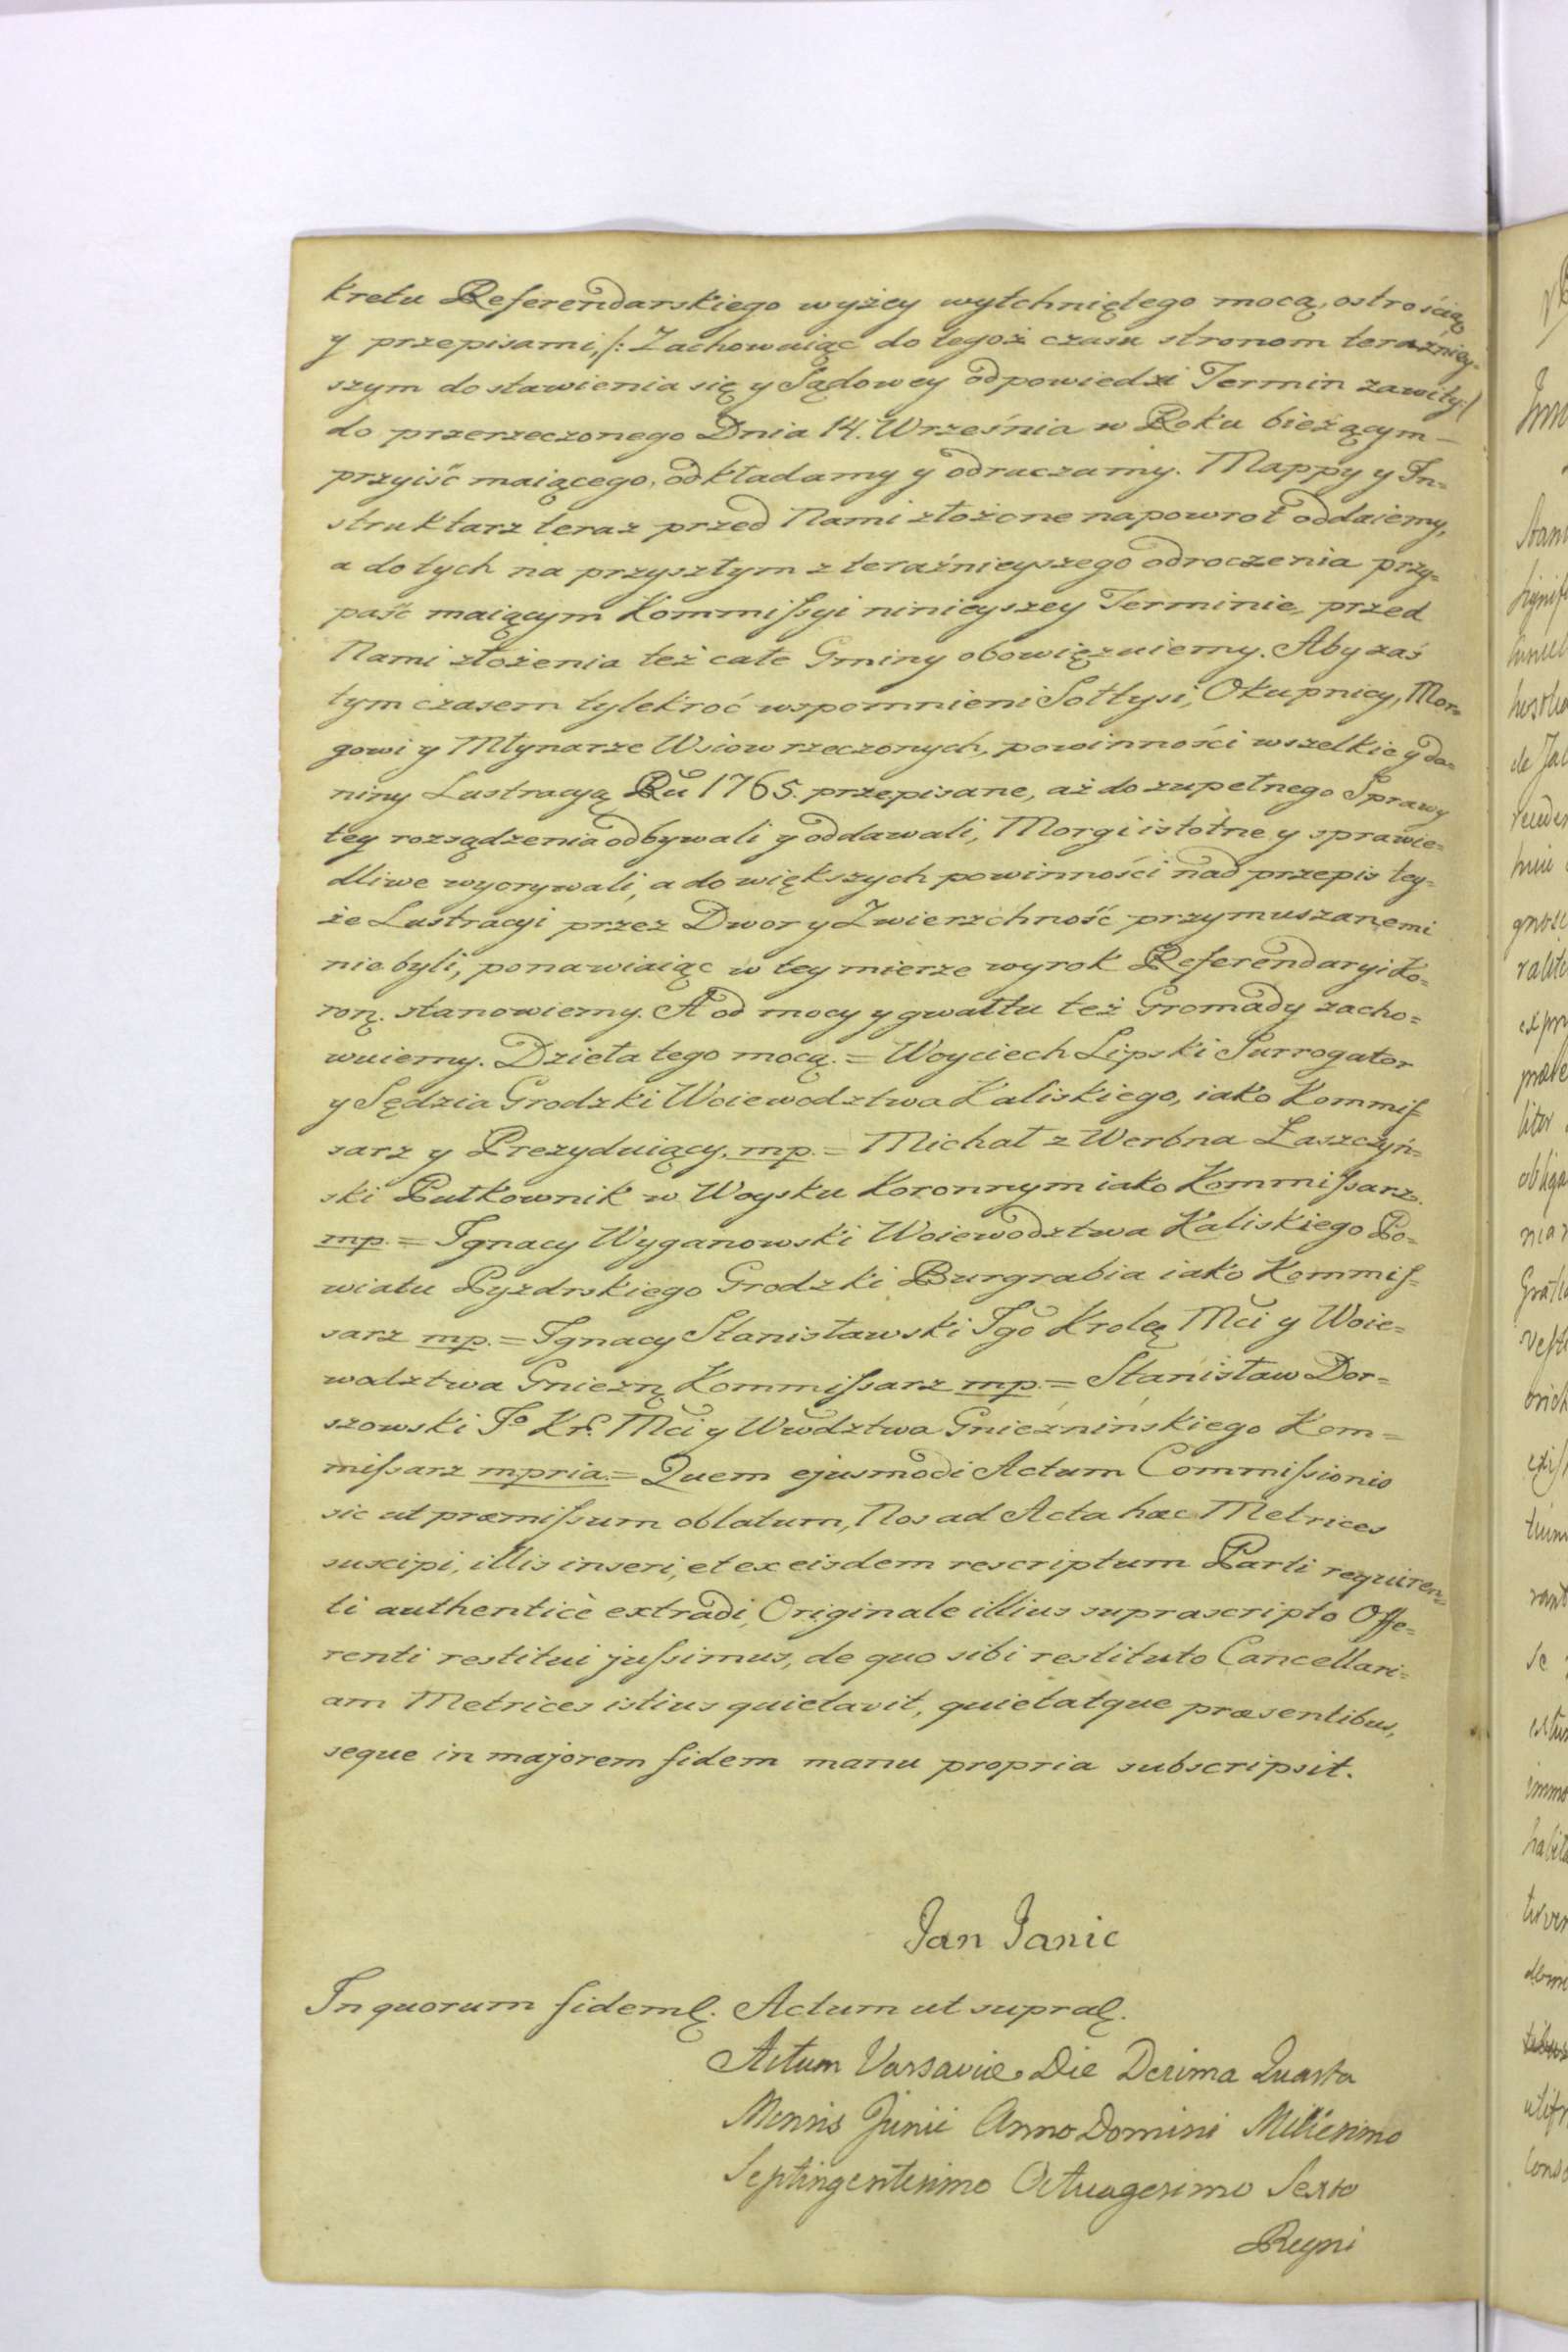 kretu Referendarskiego wyżey wytchniętego mocą, ostrością
y przepisami, /: Zachowuiąc do tegoż czasu stronom teraźniey-
szym do stawienia się y Sądowey odpowiedzi Termin zawity :/
do przerzeczonego Dnia 14. Września w Roku bieżącym –
przyiść maiącego, odkładamy y odraczamy. Mappy y In=
struktarz teraz przed Nami złożone napowrot oddaiemy,
a do tych na przyszłym z teraźnieyszego odroczenia przy=
paść maiącym Kommißyi ninieyszey Terminie, przed
Nami złożenia też całe Gminy obowięzuiemy. Aby zaś
tym czasem tylekroć wspomnieni Sołtysi, Okupnicy, Mor=
gowi y Młynarze Wsiow rzeczonych, powinności wszelkie y da=
niny Lustracyą Ru 1765. przepisane, aż do zupełnego Sprawy
tey rozsądzenia odbywali y oddawali, Morgi istotne y sprawie=
dliwe wyorywali, a do większych powinności nad przepis tey=
że Lustracyi przez Dwor y Zwierzchność przymuszanemi
nie byli, ponawiaiąc w tey mierze wyrok Referendaryi Ko=
roñ. stanowiemy. A od mocy y gwałtu też Gromady zacho=
wuiemy. Dzieła tego mocą. = Woyciech Lipski Surrogator
y Sędzia Grodzki Woiewodztwa Kaliskiego, iako Kommiß
sarz y Prezyduiący. mp. = Michał z Werbna Łaszczyń=
ski Pułkownik w Woysku Koronnym iako Kommißarz.
mp. = Ignacy Wyganowski Woiewodztwa Kaliskiego Po=
wiatu Pyzdrskiego Grodzki Burgrabia iako Kommis=
sarz mp. = Ignacy Stanisławski Jgo Krolę Mci y Woie=
wodztwa Gnieznę Kommißarz mp. = Stanisław Dor=
szowski Jo Kr. Mci y Wwdztwa Gnieźnińskiego Kom=
mißarz mpria. = Quem ejusmodi Actum Commißionis
sic ut præmißum oblatum, Nos ad Acta hæc Metrices
suscipi, illis inseri, et ex eisdem rescriptum Parti requiren=
ti authenticè extradi, Originale illius suprascripto Offe=
renti restitui jußimus, de quo sibi restituto Cancellari=
am Metrices istius quietavit, quietatque præsentibus,
seque in majorem fidem manu propria subscripsit.
Jan Janic
In quorum fidem &. Actum ut supra &.
Actum Varsaviæ Die Decima Quarta
Mensis Junii Anno Domini Millesimo
Septingentesimo Octuagesimo Sexto
Regni